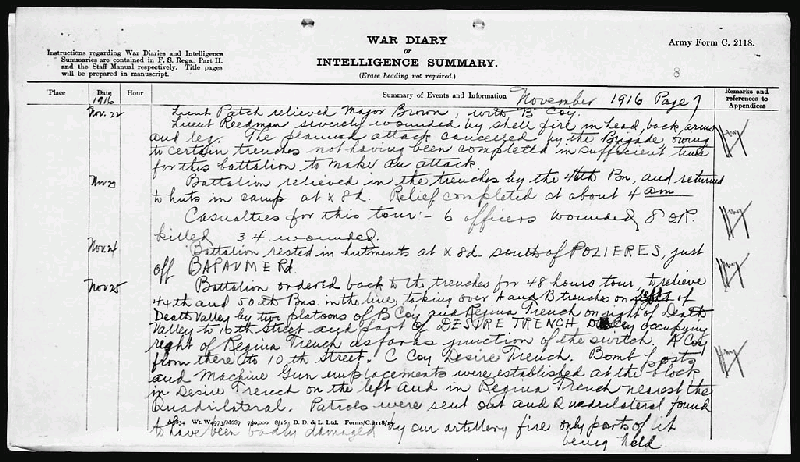 WAR DIARY
or
INTELLIGENCE SUMMARY.
(Erase heading not required.)
Army Form C. 2118.
Instructions regarding War Diaries and Intelligence
Summaries are contained in F. S. Regs., Part II.
and the Staff Manual respectively. Title pages
will be prepared in manuscript.
8
Place Date Hour Summary of Events and Information Remarks and references to Appendices
1916 November 1916 Page 7
Nov. 22 Lieut Patch relieved Major Brown, with B Coy.
Lieut Reedman seriously wounded by shell fire in head, back, arm
and leg. The planned attack cancelled by the Brigade, owing
to certain trenches not having been completed in sufficient time
for this battalion to make the attack
Nov 23 Battalion relieved in the trenches by the 46th Bn, and returned
to huts in camp at X 8 d. Relief completed at about 4 am
Casualties for this tour - 6 officers wounded, 8 O.R.
killed 34 wounded.
Nov 24 Battalion rested in hutments at X 8d south of POZIERES, just
off BAPAUME Rd.
Nov 25 Battalion ordered back to the trenches for 48 hours tour to relieve
44th and 50th Bns. in the line, taking over A and B trenches on left of
Death Valley by two platoons of B Coy and Regina Trench on right of Death
Valley to 16th Street and part of DESIRE TRENCH, occupying
right of Regina Trench as far as junction of the switch. A Coy
from there to 10th Street. C Coy Desire Trench. Bomb posts
and Machine Gun emplacements were established at the block
in Desire Trench on the left and in Regina Trench nearest the
Quadrilateral. Patrols were sent out and Quadrilateral found
to have been badly damaged by our artillery fire only parts of it
being held
D. D. & L. Ltd.